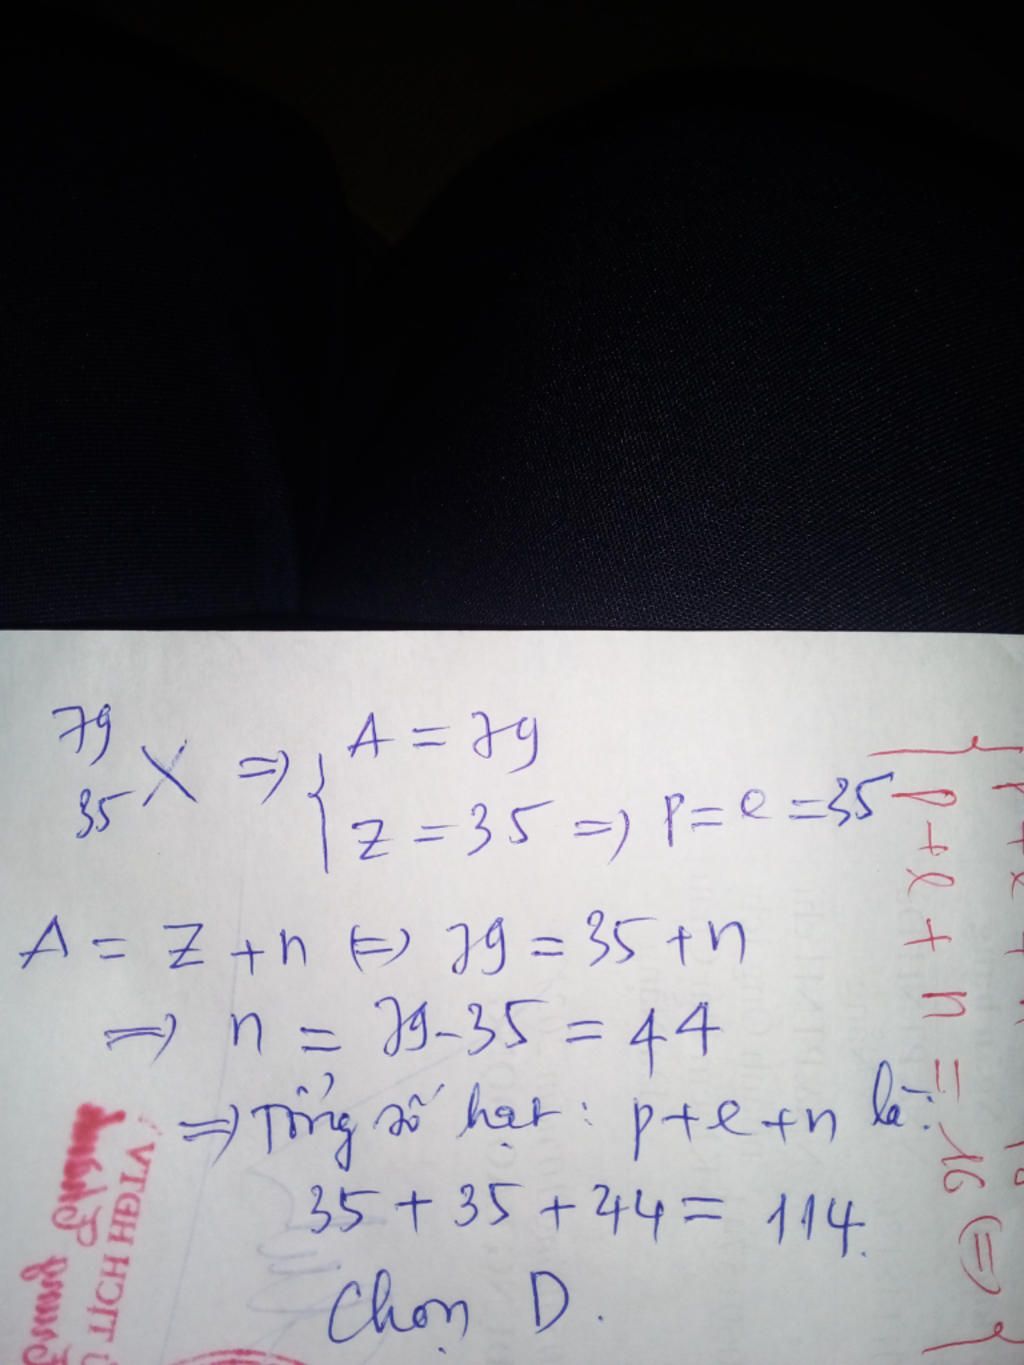 79
35 X => { A = 79
Z = 35 => p = e = 35
A = Z + n <=> 79 = 35 + n
=> n = 79 - 35 = 44
=> Tổng số hạt : p + e + n là :
35 + 35 + 44 = 114.
Chọn D.
p + e + n =
TỊCH HĐTV